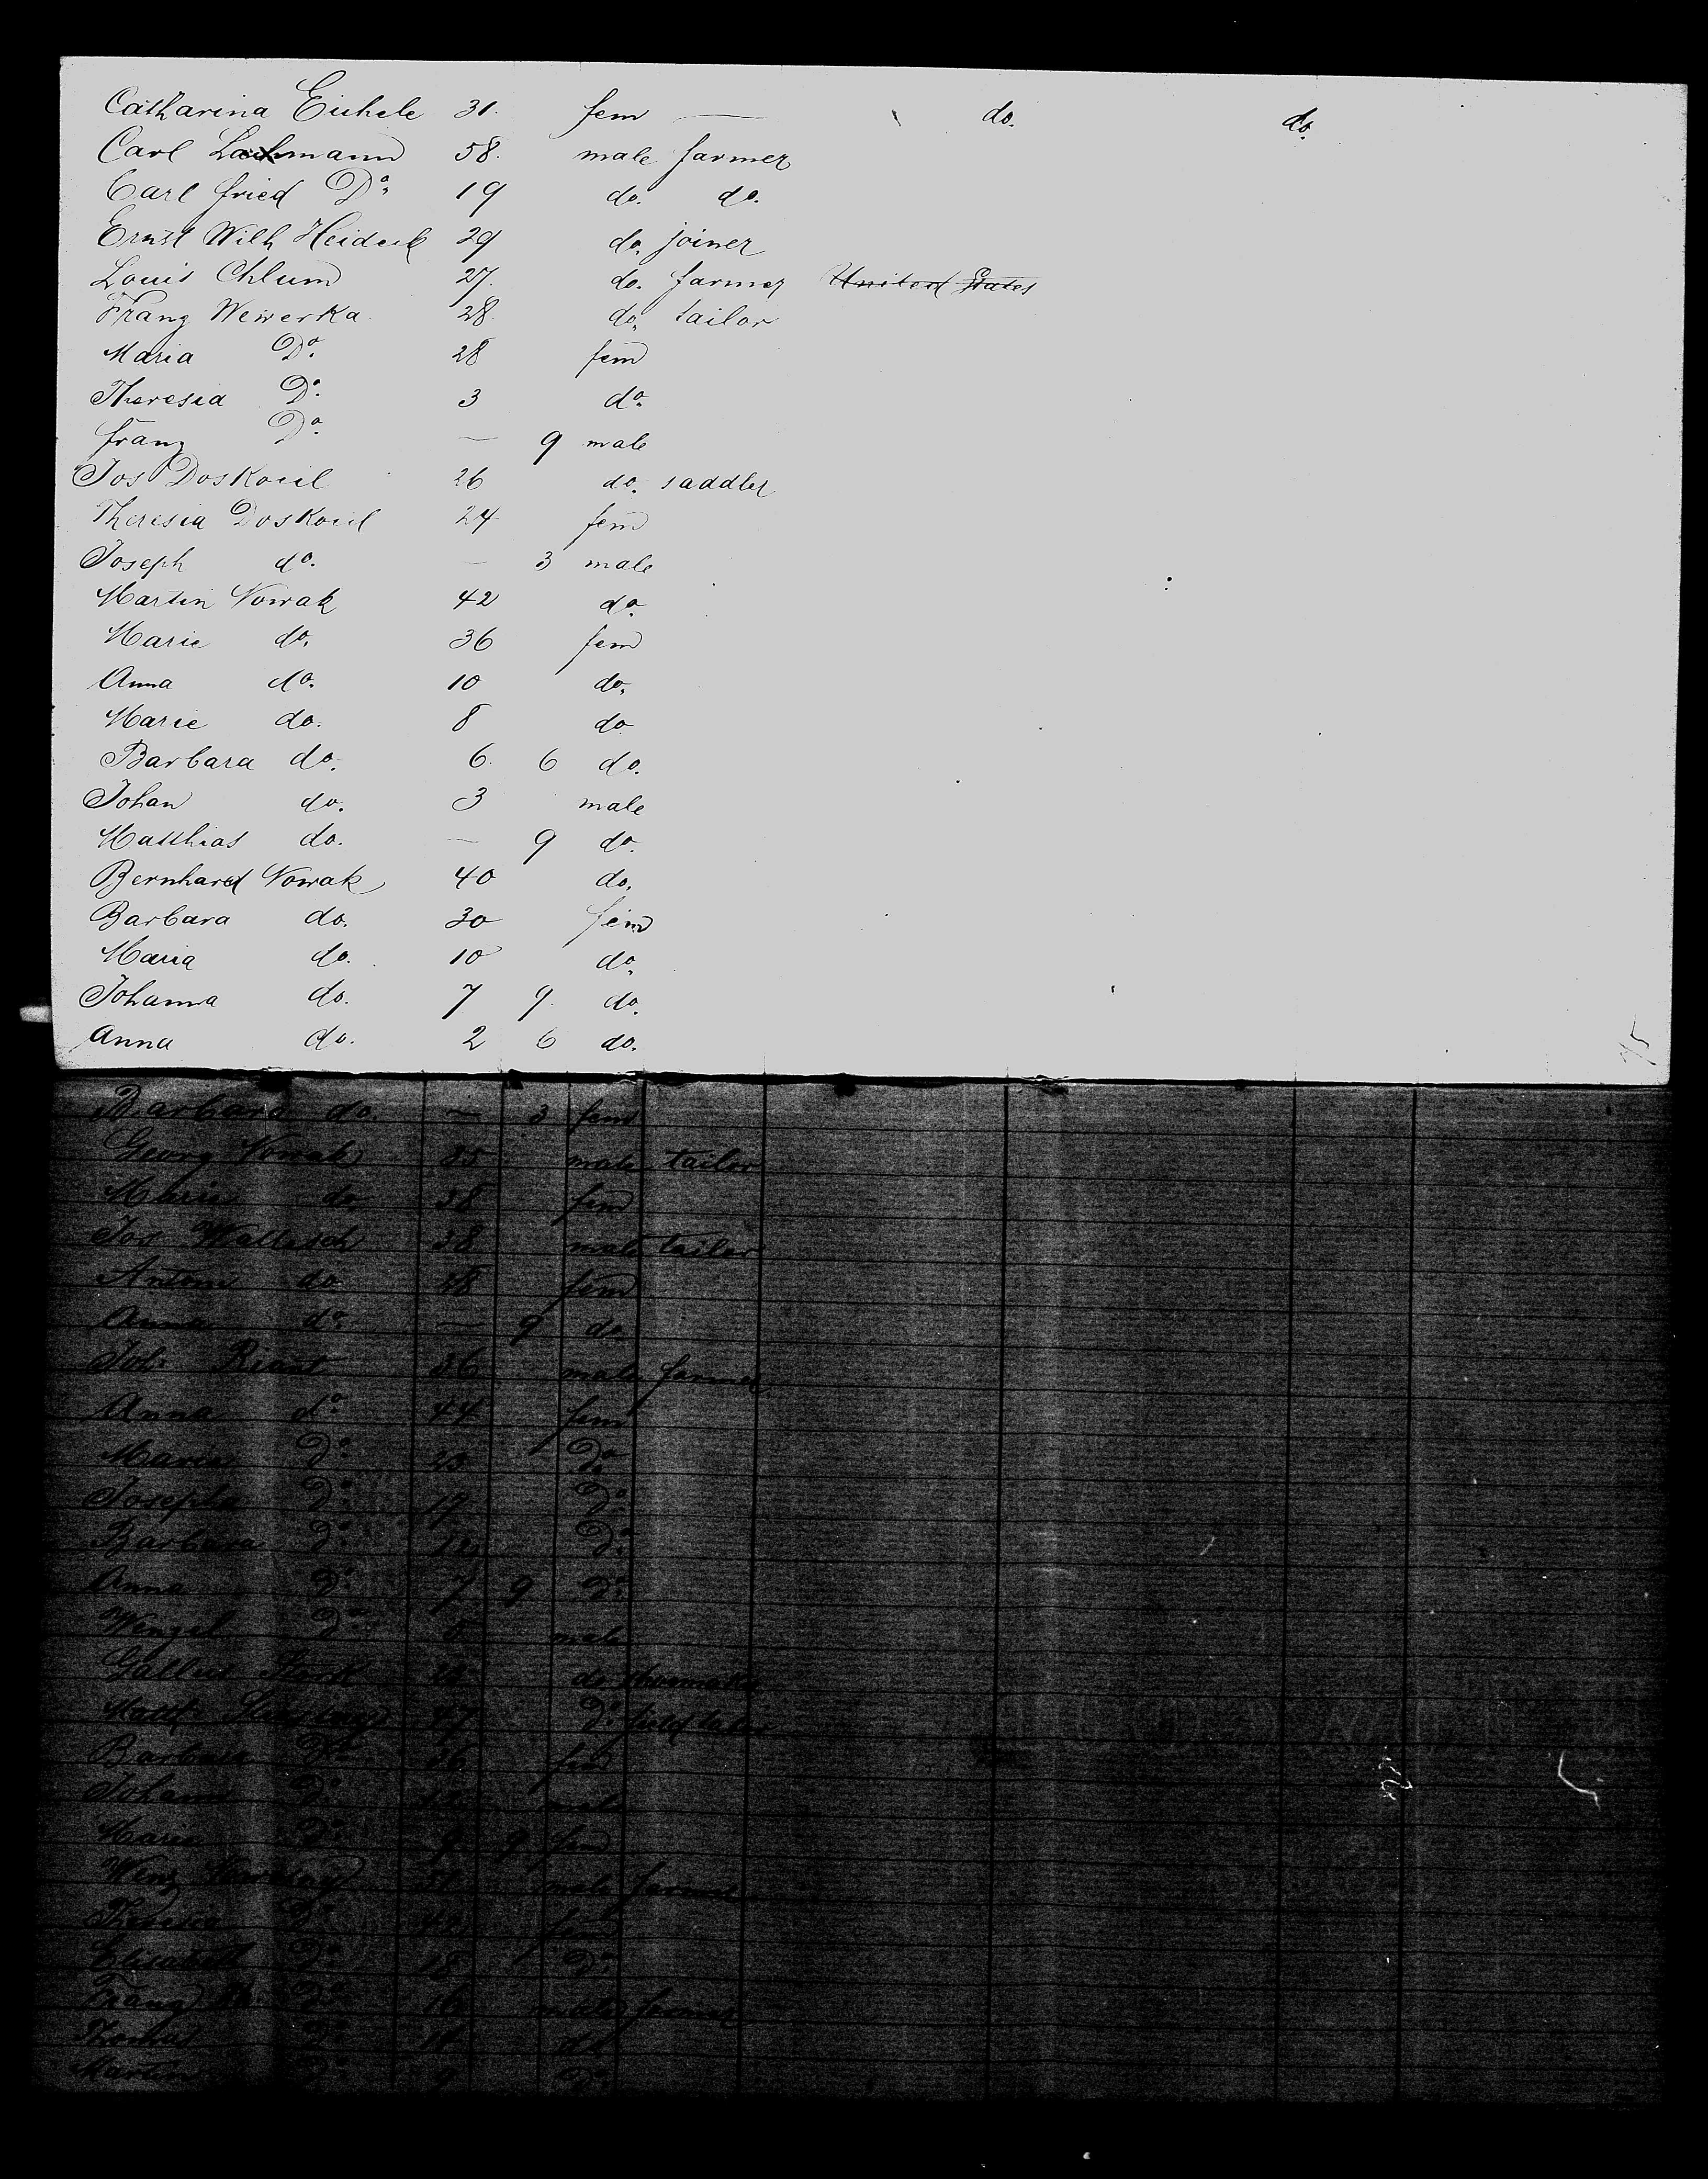 Catharina Eichele 31. fem — do. do.
Carl Lachmann 58. male farmer
Carl fried Do. 19 do. do.
Ernst Wilh Heideck 29 do. joiner
Louis Chlum 27. do. farmer United States
Franz Wewerka 28 do. tailor
Maria Do. 28 fem
Theresia Do. 3 do.
franz Do. — 9 male
Jos Doskocil 26 do. saddler
Theresia Doskocil 24 fem
Joseph do. — 3 male
Martin Nowak 42 do.
Marie do. 36 fem
Anna do. 10 do.
Marie do. 8 do
Barbara do. 6. 6 do.
Johan do. 3 male
Matthias do. — 9 do.
Bernhard Nowak 40 do.
Barbara do. 30 fem
Maria do. 10 do.
Johanna do. 7 9. do.
Anna do. 2 6 do.
Barbara do. — 3 fem
Georg Nowak 35 male tailor
Marie do. 38 fem
Jos 38 male tailor
Anton do 28 fem
Anna do. — 9 do
Joh. 56 male farmer
Anna do. 44 fem
Maria Do. 23 Do.
Josepha Do. 19 Do.
Barbara Do. 12 Do.
Anna Do. 7 9 Do.
Wenzel Do. 5 male
Gallus do shoemaker
Matth 47 Do.
Barbara Do. 36 fem
Johann Do. male
Marie Do. 9 9 fem
Wenz male farmer
Theresia Do. fem
Elisabeth Do. 18 Do.
Franz Do. 16 male farmer
Thomas Do. 11 do
Martin Do. 9 Do.